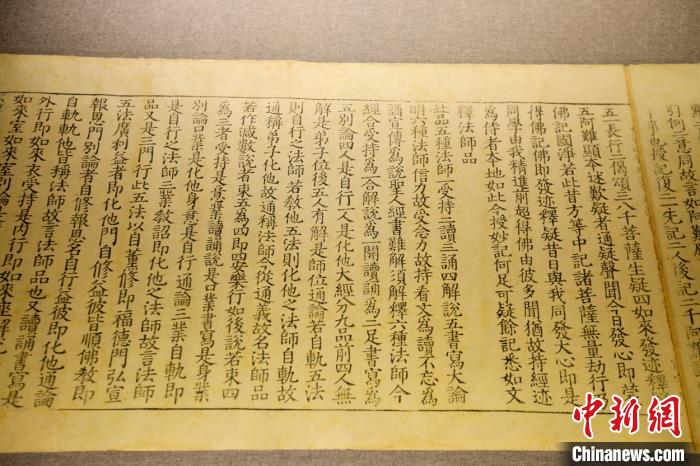 五一長行二偈頌三八千菩薩生疑四如來發迹釋
五阿難顯本述歎疑者通疑聲聞今日發心即蒙
佛記國淨若此昔方等中記諸菩薩無量劫行行
得佛記佛即發迹釋疑昔日與我同發大心即是
同學由我精進前超得佛由彼多聞猶故持經迹
為侍者本地如此今授妙記何足可疑餘記悉如文
釋法師品
此品五種法師一受持二讀三誦四解說五書寫大論
明六種法師信力故受念力故持看文為讀不忘為
誦宣傳為說聖人經書難解須解釋六種法師今
經合受持為一合解說為一開讀誦為二足書寫為
五別論四人是自行一人是化他大經分九品前四人無
解是弟子位後五人有解是師位通論若自軌五法
則自行之法師若教他五法則化他之法師自軌故
通稱弟子化他故通稱法師今從通義故名法師品
若作減數說者束五為四即安樂行如後說若束四
為三者受持是意業讀誦說是口業書寫是身業
別論口業是化他身意是自行通論三業自軌即
是自行之法師三業教詔即化他之法師故言法師
品又是三門行此五法以自薰修即福德門弘宣
五法廣利益者即化他門自修益彼皆順佛教即
報恩門別論者自修報恩名自行益彼即化他通論
自軌軌他皆稱法師故言法師品也又讀誦書寫是
外行即如來衣受持是內行即如
中新网
Chinanews.com